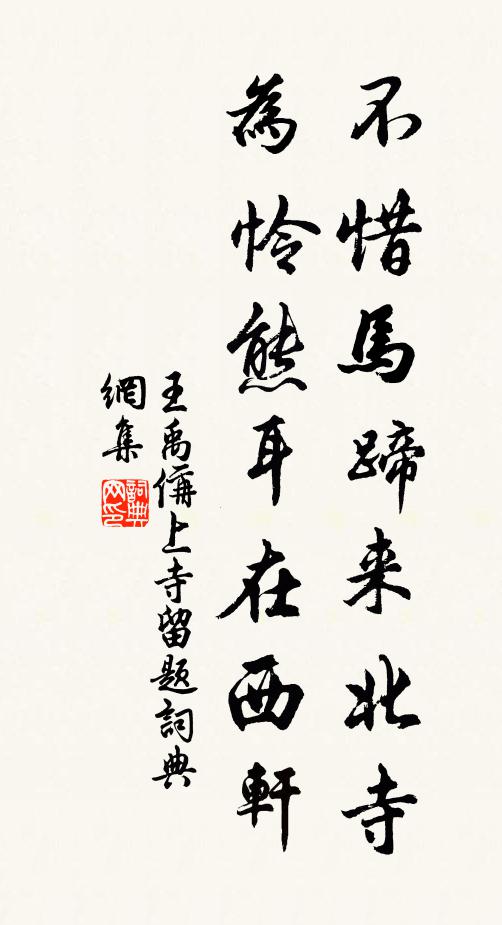 不惜馬蹄来北寺
為怜熊耳在西軒
王禹偁上寺留題詞典
網集
詞典
网印